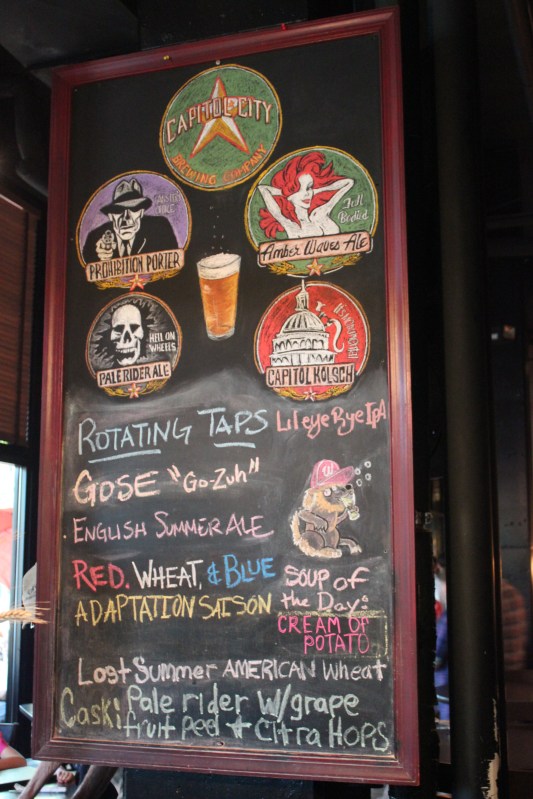 CAPITOL CITY
BREWING COMPANY
PROHIBITION PORTER
Full
Bodied
Amber Waves Ale
HELL ON
WHEELS
PALE RIDER ALE
CAPITOL KOLSCH
ROTATING TAPS
Lil eye Rye IPA
GOSE "Go-Zuh"
ENGLISH SUMMER ALE
RED. WHEAT, & BLUE
ADAPTATION SAISON
SOUP OF
the Day:
CREAM OF
POTATO
W
Lost Summer AMERICAN Wheat
Cask: Pale rider w/grape
fruit peel + Citra HOPS